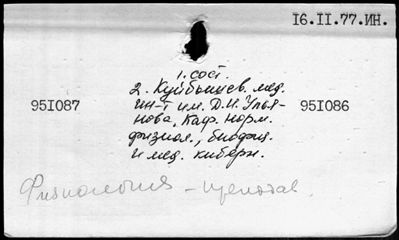 16.II.77.ИН.
1. сост.
2. Куйбышев. мед.
ин-т им. Д.И. Улья-
нова. Каф. норм.
физиол., биофиз.
и мед. киберн.
951087
951086
Физиология – преподав.